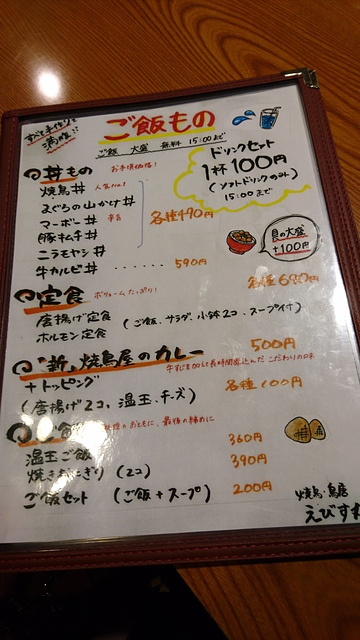 すべて手作りで
満腹!!
ご飯もの
ご飯 大盛 無料 15:00まで
ドリンクセット
1杯100円
(ソフトドリンクのみ)
15:00まで
丼もの お手頃価格!
焼鳥丼 人気No.1
まぐろの山かけ丼
マーボー丼 辛旨
豚キムチ丼
ニラモヤシ丼
各種490円
牛カルビ丼 ・・・・・・ 590円
具の大盛
+100円
定食 ボリュームたっぷり!
各種690円
唐揚げ定食
ホルモン定食
(ご飯、サラダ、小鉢2コ、スープ付)
新,焼鳥屋のカレー 500円
+トッピング 各種100円
(唐揚げ2コ、温玉、チーズ)
最後の締めに
温玉ご飯 360円
焼きおにぎり (2コ) 390円
ご飯セット (ご飯+スープ) 200円
焼鳥・鳥居
えびす